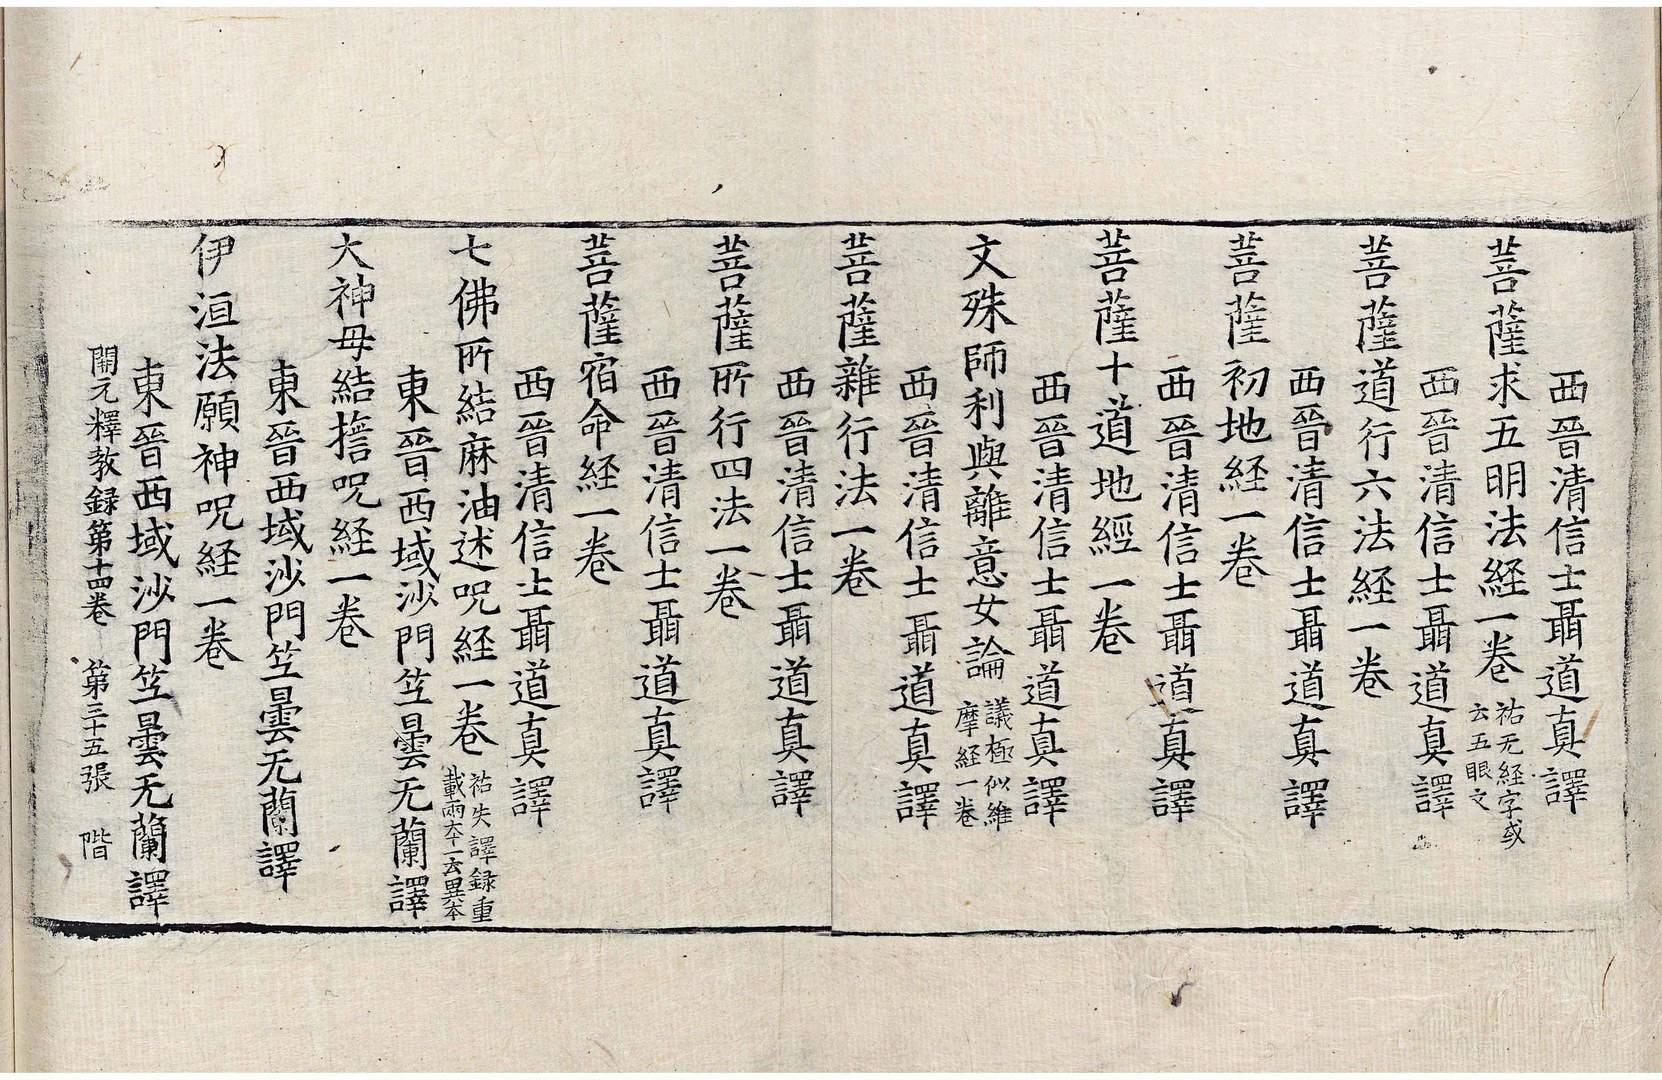 西晉清信士聶道真譯
菩薩求五明法経一卷 祐无経字或云五眼文
西晉清信士聶道真譯
菩薩道行六法経一卷
西晉清信士聶道真譯
菩薩初地経一卷
西晉清信士聶道真譯
菩薩十道地經一卷
西晉清信士聶道真譯
文殊師利與離意女論 議極似維摩経一卷
西晉清信士聶道真譯
菩薩雜行法一卷
西晉清信士聶道真譯
菩薩所行四法一卷
西晉清信士聶道真譯
菩薩宿命経一卷
西晉清信士聶道真譯
七佛所結麻油述呪経一卷 祐失譯録重載兩本一云異本
東晉西域沙門竺曇无蘭譯
大神母結誓呪経一卷
東晉西域沙門竺曇无蘭譯
伊洹法願神呪経一卷
東晉西域沙門竺曇无蘭譯
開元釋教録第十四卷 第三十五張 階